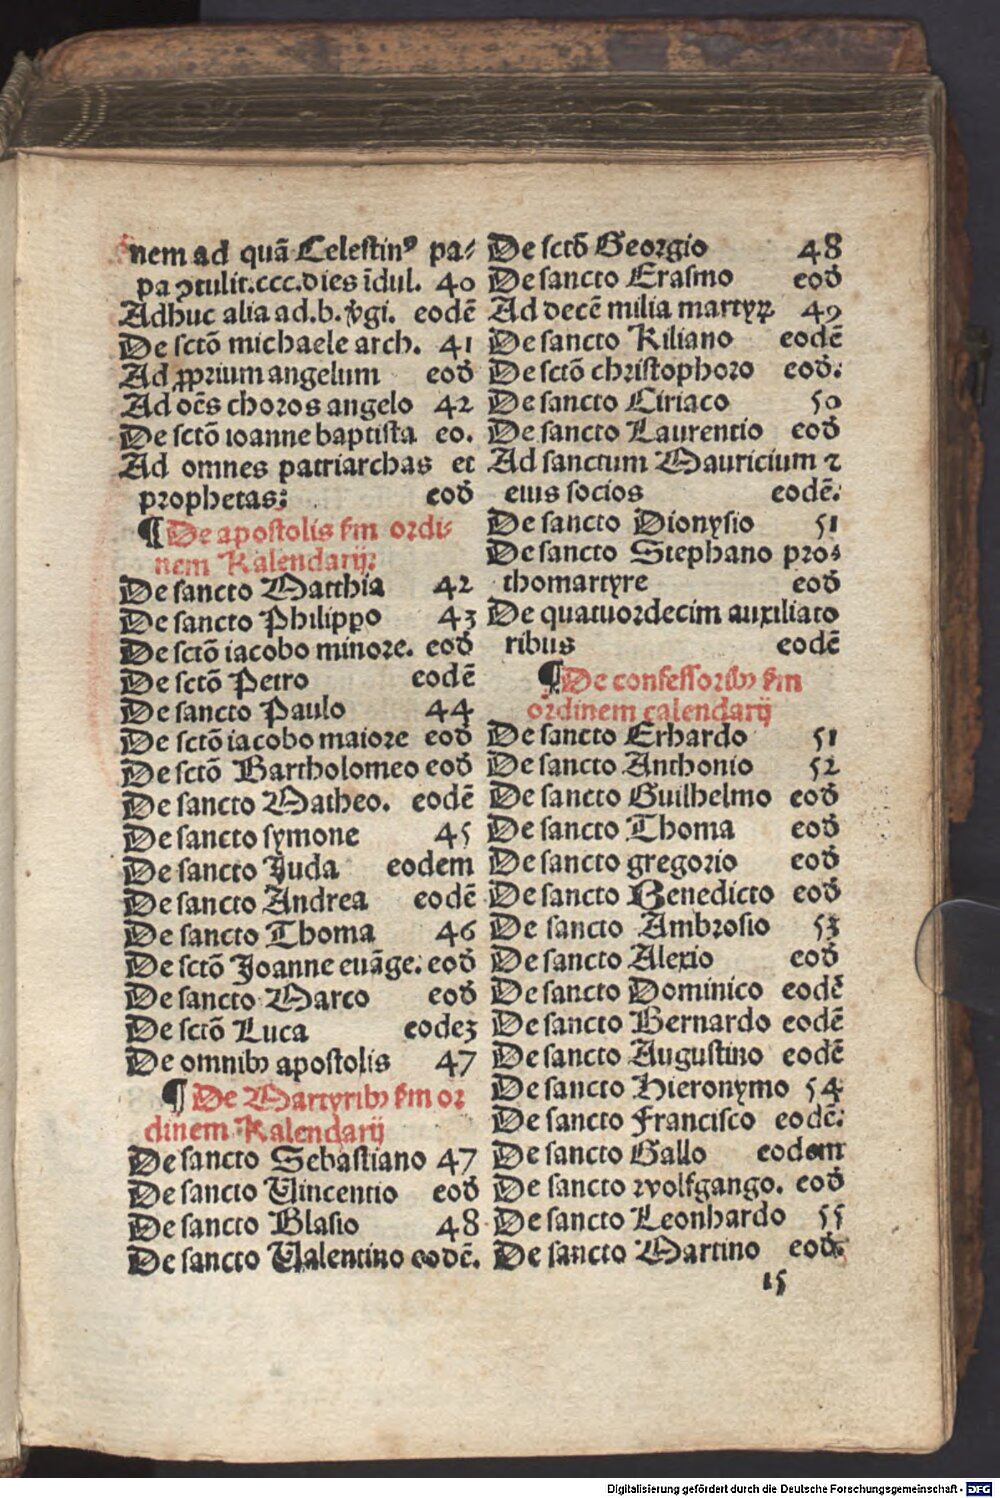 nem ad quā Celestinꝰ pa⸗
pa ꝯtulit.ccc.dies īdul. 40
Adhuc alia ad.b.v̄gi. eodē
De sctō michaele arch. 41
Ad ꝓprium angelum eod̄
Ad oēs choros angelo 42
De sctō ioanne baptista eo.
Ad omnes patriarchas et
prophetas: eod̄
¶ De apostolis s̄m ordi⸗
nem Kalendarij:
De sancto Matthia 42
De sancto Philippo 43
De sctō iacobo minore. eod̄
De sctō Petro eodē
De sancto Paulo 44
De sctō iacobo maiore eod̄
De sctō Bartholomeo eod̄
De sancto Matheo. eodē
De sancto symone 45
De sancto Juda eodem
De sancto Andrea eodē
De sancto Thoma 46
De sctō Joanne euāge. eod̄
De sancto Marco eod̄
De sctō Luca eodeꝫ
De omnibꝰ apostolis 47
¶ De Martyribꝰ s̄m or
dinem Kalendarij
De sancto Sebastiano 47
De sancto Vincentio eod̄
De sancto Blasio 48
De sancto Valentino eodē.
De sctō Georgio 48
De sancto Erasmo eod̄
Ad decē milia martyrꝝ 49
De sancto Kiliano eodē
De sctō christophoro eod̄.
De sancto Ciriaco 50
De sancto Laurentio eod̄
Ad sanctum Mauricium ⁊
eius socios eodē.
De sancto Dionysio 51
De sancto Stephano pro⸗
thomartyre eod̄
De quatuordecim auxiliato
ribus eodē
¶ De confessoribꝰ s̄m
ordinem calendarij
De sancto Erhardo 51
De sancto Anthonio 52
De sancto Guilhelmo eod̄
De sancto Thoma eod̄
De sancto gregorio eod̄
De sancto Benedicto eod̄
De sancto Ambrosio 53
De sancto Alexio eod̄
De sancto Dominico eodē
De sancto Bernardo eodē
De sancto Augustino eodē
De sancto Hieronymo 54
De sancto Francisco eodē.
De sancto Gallo eodem
De sancto wolfgango. eod̄
De sancto Leonhardo 55
De sancto Martino eod̄.
15
Digitalisierung gefördert durch die Deutsche Forschungsgemeinschaft - DFG